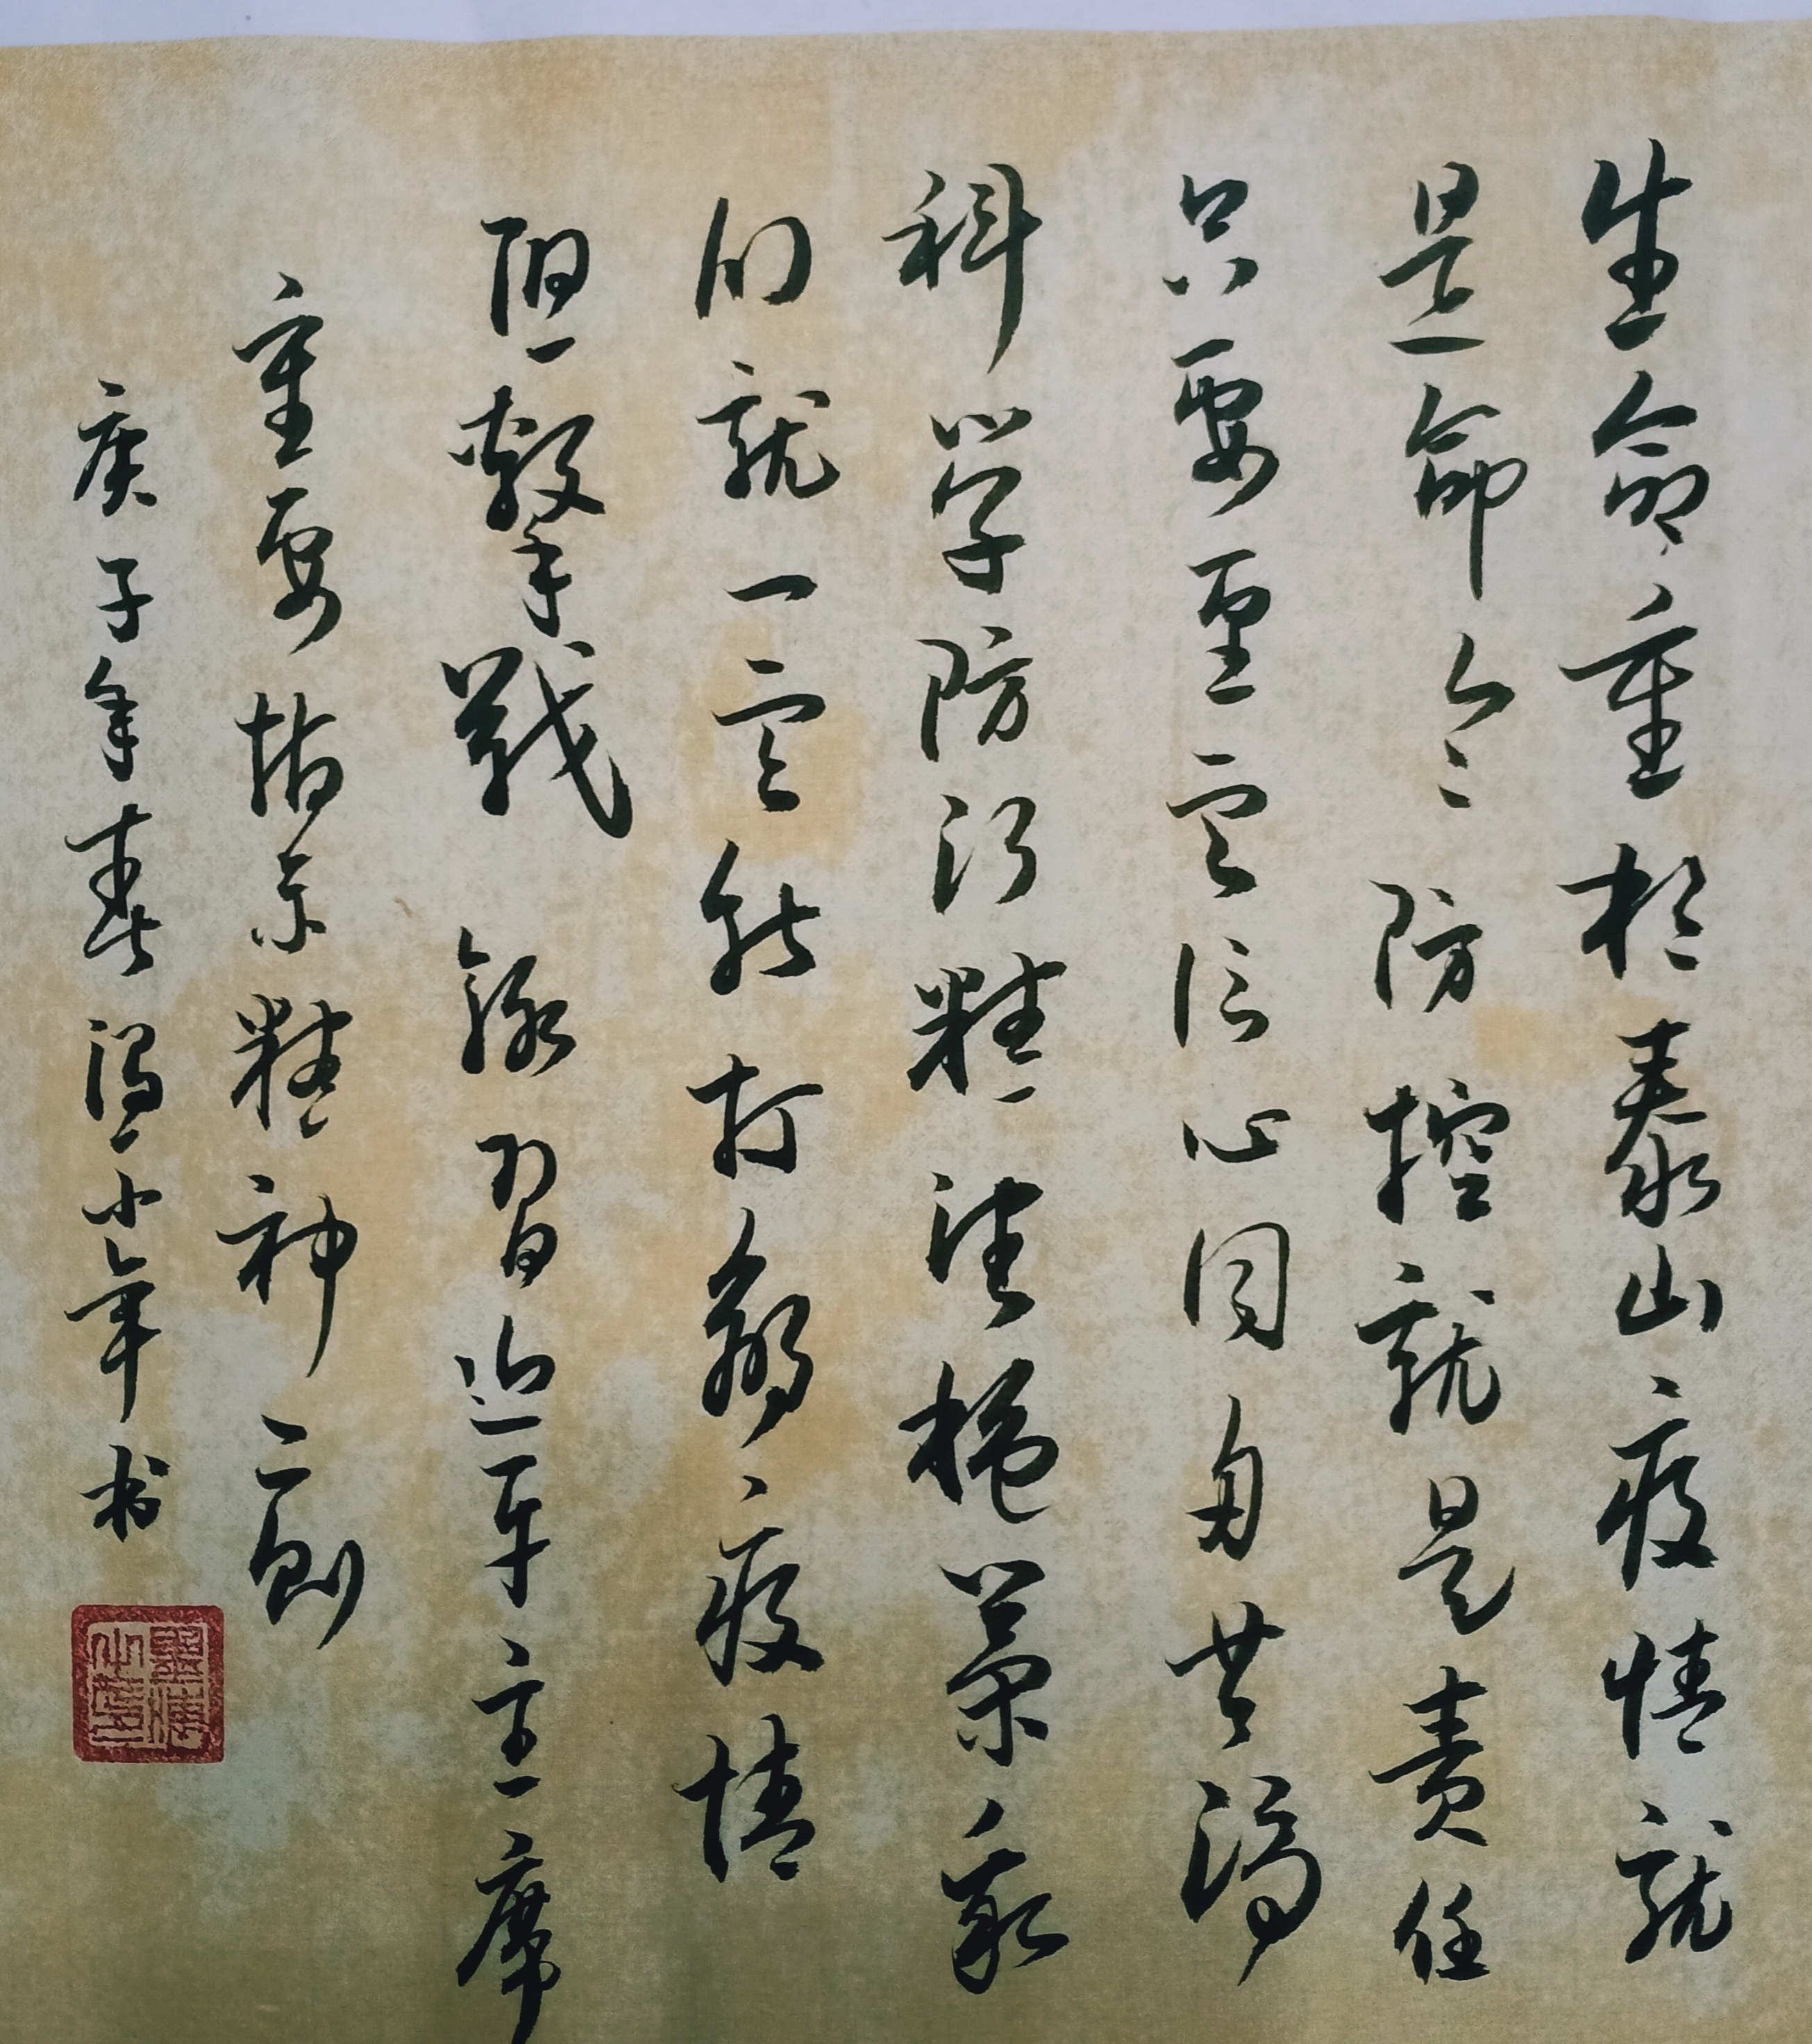 生命重於泰山疫情就
是命令防控就是责任
只要坚定信心同舟共济
科学防治精准施策我
们就一定能打赢疫情
阻擊戰 錄習近平主席
重要指示精神二则
庚子年春小军书